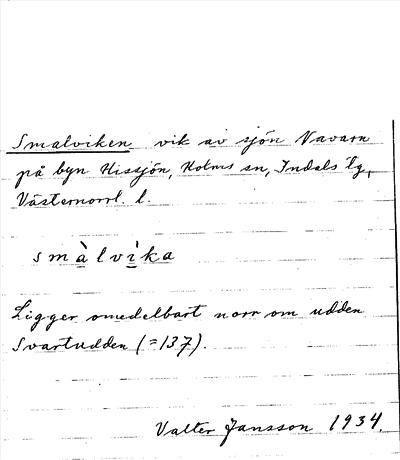 Smalviken vik av sjön Navarn
på byn Hissjön, Holms sn, Indals tg,
Västernorrl. l.
smàlvìka
Ligger omedelbart norr om udden
Svartudden (=137).
Valter Jansson 1934.